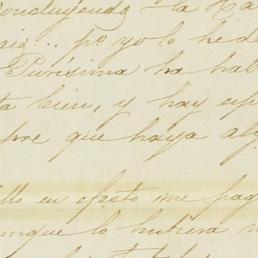 Concluyendo la Ra
pº yo lo he d
Purísima ha hab
ta bien, y hay esp
pre que haya alg
llo en efecto me pag
unque lo hubiera